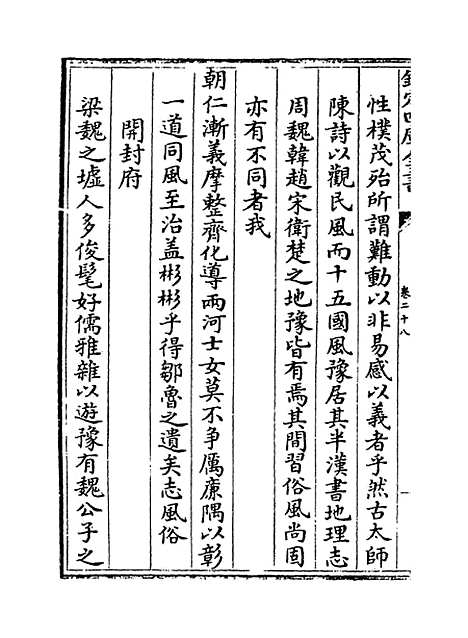 欽定四庫全書
卷二十八
性樸茂殆所謂難動以非易感以義者乎然古太師
陳詩以觀民風而十五國風豫居其半漢書地理志
周魏韓趙宋衛楚之地豫皆有焉其間習俗風尚固
亦有不同者我
朝仁漸義摩整齊化導兩河士女莫不争厲廉隅以彰
一道同風至治盖彬彬乎得鄒魯之遺矣志風俗
開封府
梁魏之墟人多俊髦好儒雅雜以遊豫有魏公子之